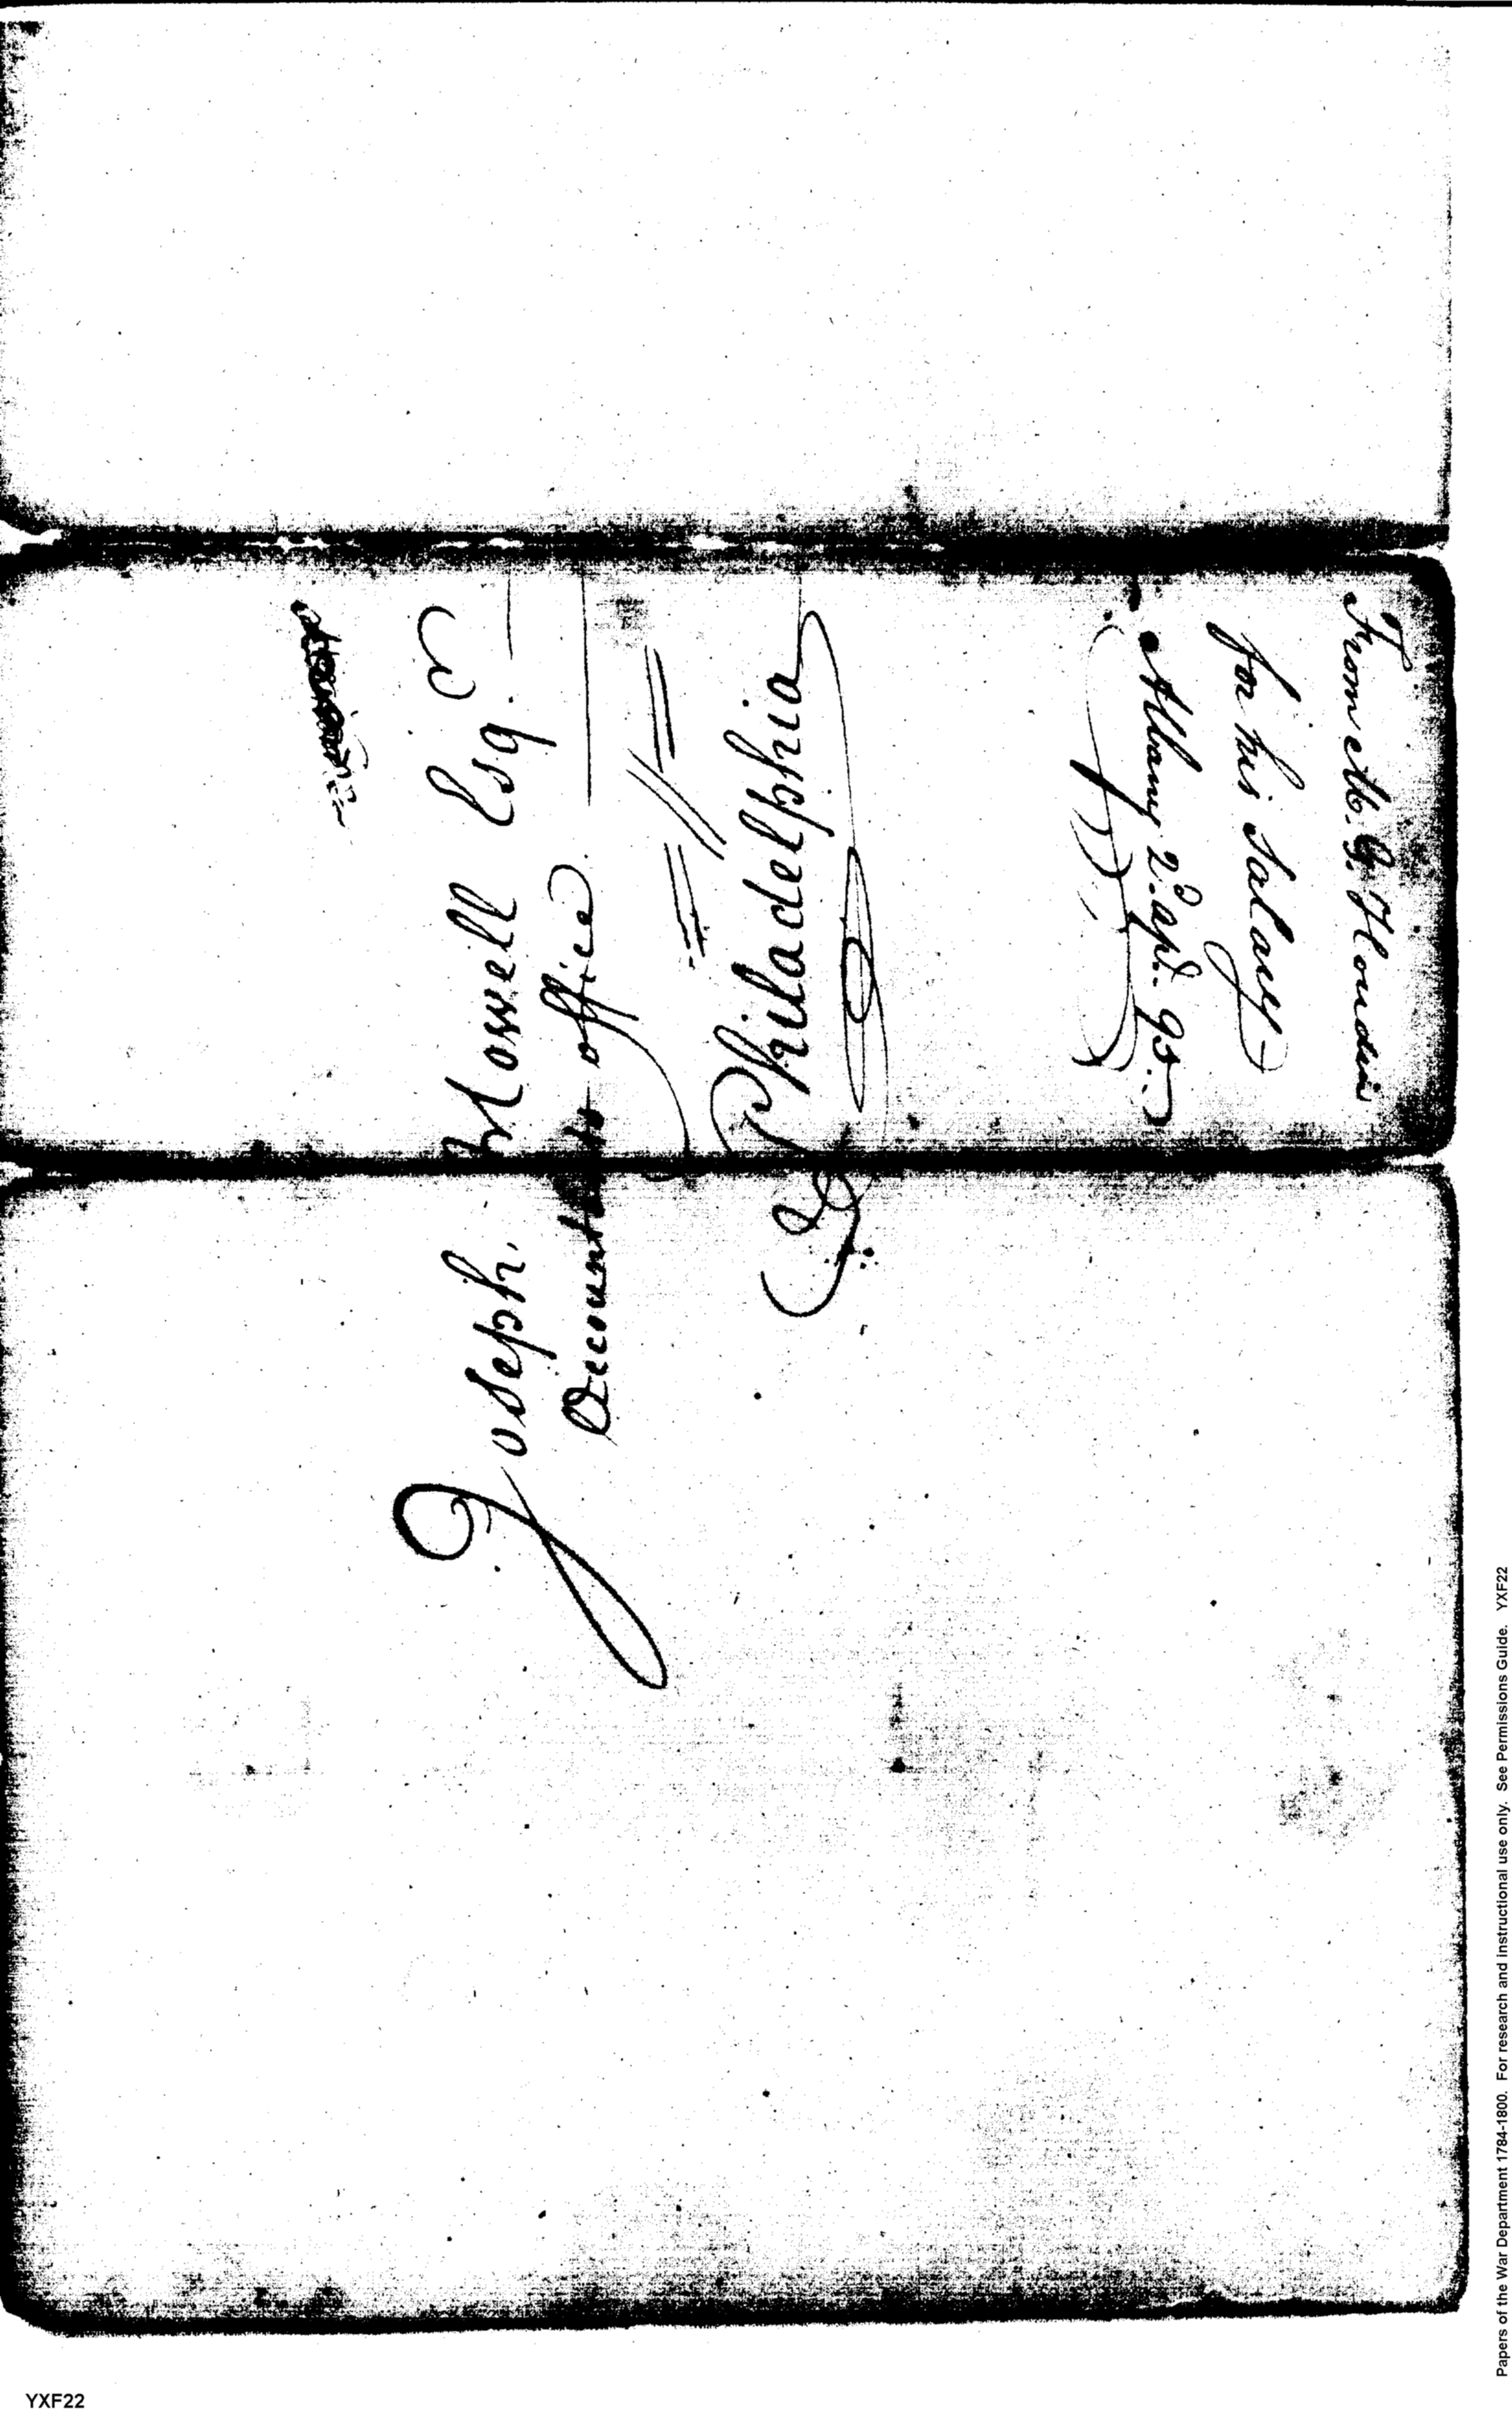 Joseph Howell Esq.
Accountants office
Philadelphia
From M. G. Houdin
for his Salary
Albany 2d. apl. 95.
YXF22
Papers of the War Department 1784-1800. For research and instructional use only. See Permissions Guide. YXF22